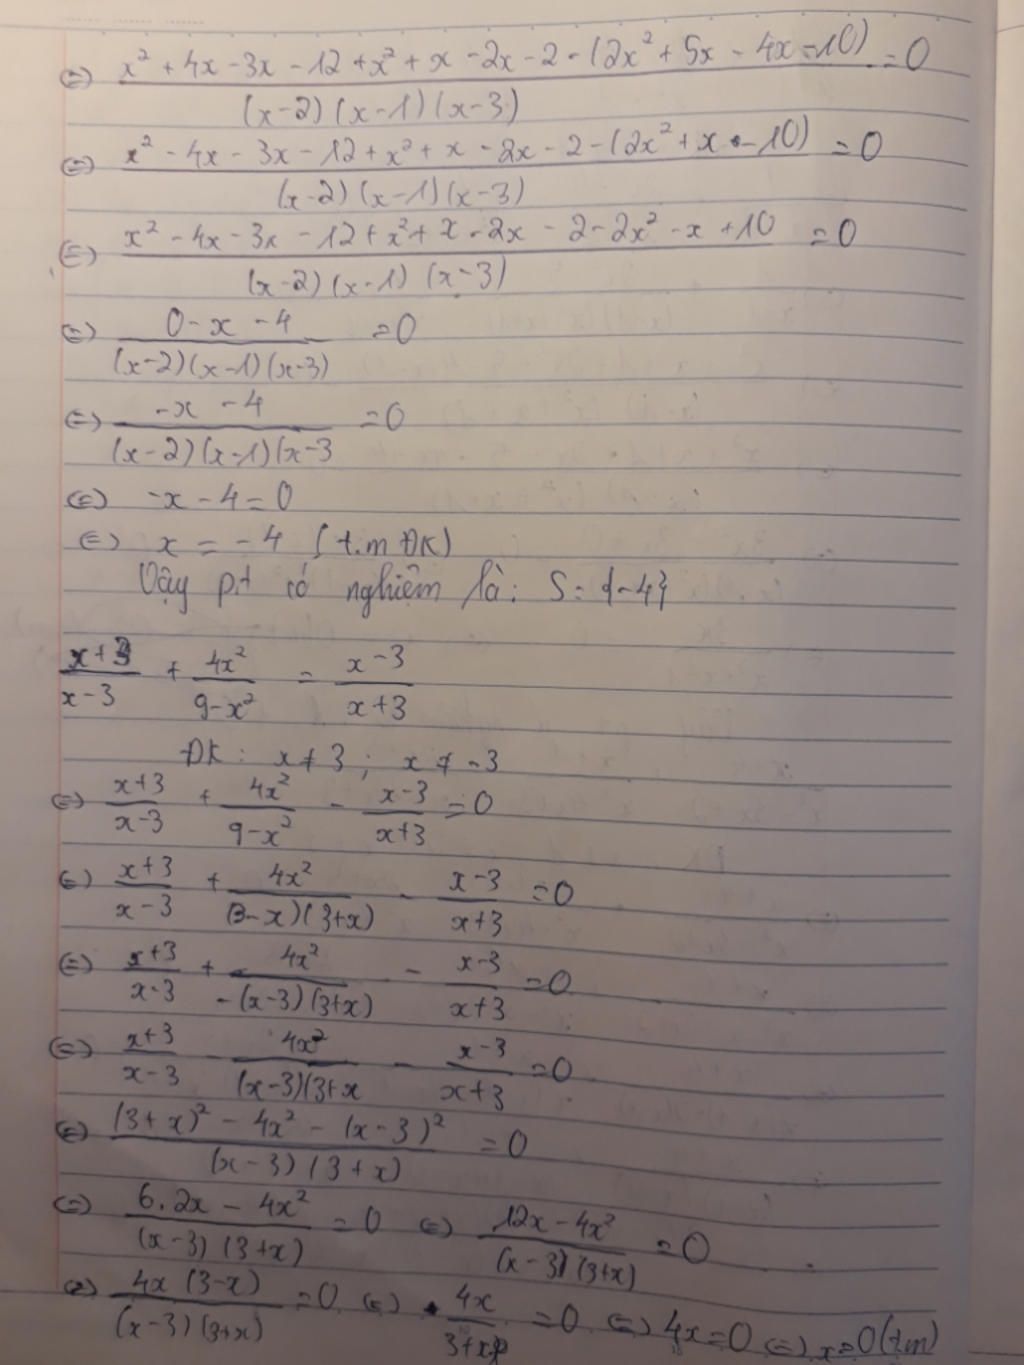 ⇔ (x² + 4x - 3x - 12 + x² + x - 2x - 2 - (2x² + 5x - 4x - 10))/((x-2)(x-1)(x-3)) = 0
⇔ (x² - 4x - 3x - 12 + x² + x - 2x - 2 - (2x² + x - 10))/((x-2)(x-1)(x-3)) = 0
⇔ (x² - 4x - 3x - 12 + x² + x - 2x - 2 - 2x² - x + 10)/((x-2)(x-1)(x-3)) = 0
⇔ (0 - x - 4)/((x-2)(x-1)(x-3)) = 0
⇔ (-x - 4)/((x-2)(x-1)(x-3) = 0
⇔ -x - 4 = 0
⇔ x = -4 (t.m ĐK)
Vậy p.t có nghiệm là: S = {-4}
(x+3)/(x-3) + 4x²/(9-x²) = (x-3)/(x+3)
ĐK: x ≠ 3 ; x ≠ -3
⇔ (x+3)/(x-3) + 4x²/(9-x²) - (x-3)/(x+3) = 0
⇔ (x+3)/(x-3) + 4x²/((3-x)(3+x)) - (x-3)/(x+3) = 0
⇔ (x+3)/(x-3) + 4x²/(-(x-3)(3+x)) - (x-3)/(x+3) = 0
⇔ (x+3)/(x-3) - 4x²/((x-3)(3+x) - (x-3)/(x+3) = 0
⇔ ((3+x)² - 4x² - (x-3)²)/((x-3)(3+x)) = 0
⇔ (6.2x - 4x²)/((x-3)(3+x)) = 0 ⇔ (12x - 4x²)/((x-3)(3+x)) = 0
⇔ 4x(3-x)/((x-3)(3+x)) = 0 ⇔ 4x/(3+x) = 0 ⇔ 4x = 0 ⇔ x = 0 (t.m)